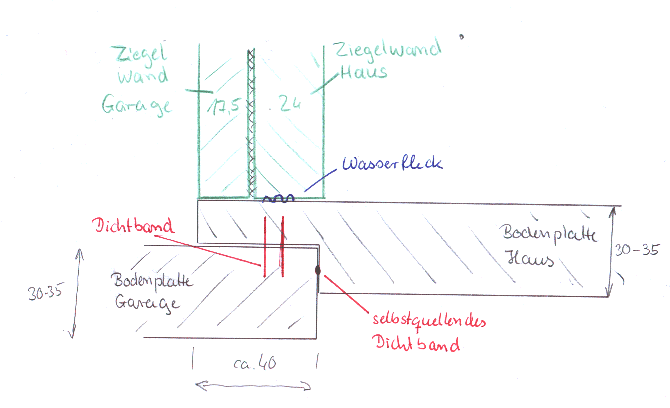 Ziegel
Wand
Garage
17,5
24
Ziegelwand
Haus
Wasserfleck
Dichtband
Bodenplatte
Haus
30-35
Bodenplatte
Garage
30-35
selbstquellendes
Dichtband
ca. 40